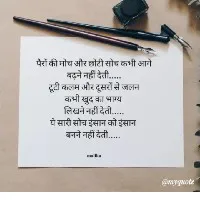 पैरों की मोच और छोटी सोच कभी आगे
बढ़ने नहीं देती.....
टूटी कलम और दूसरों से जलन
कभी खुद का भाग्य
लिखने नहीं देती.....
ये सारी सोच इंसान को इंसान
बनने नहीं देती.....